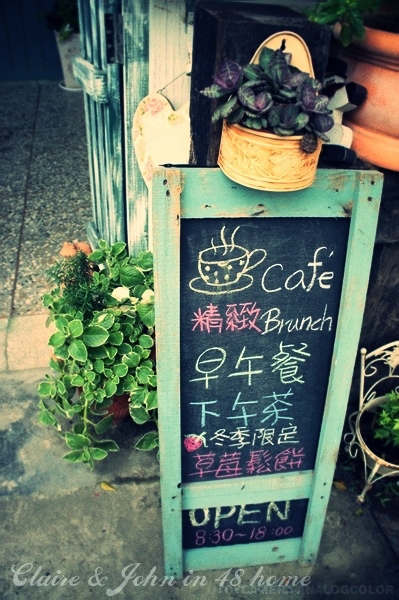 Café
精緻Brunch
早午餐
下午茶
冬季限定
草莓鬆餅
OPEN
8:30~18:00
Claire & John in 48 home